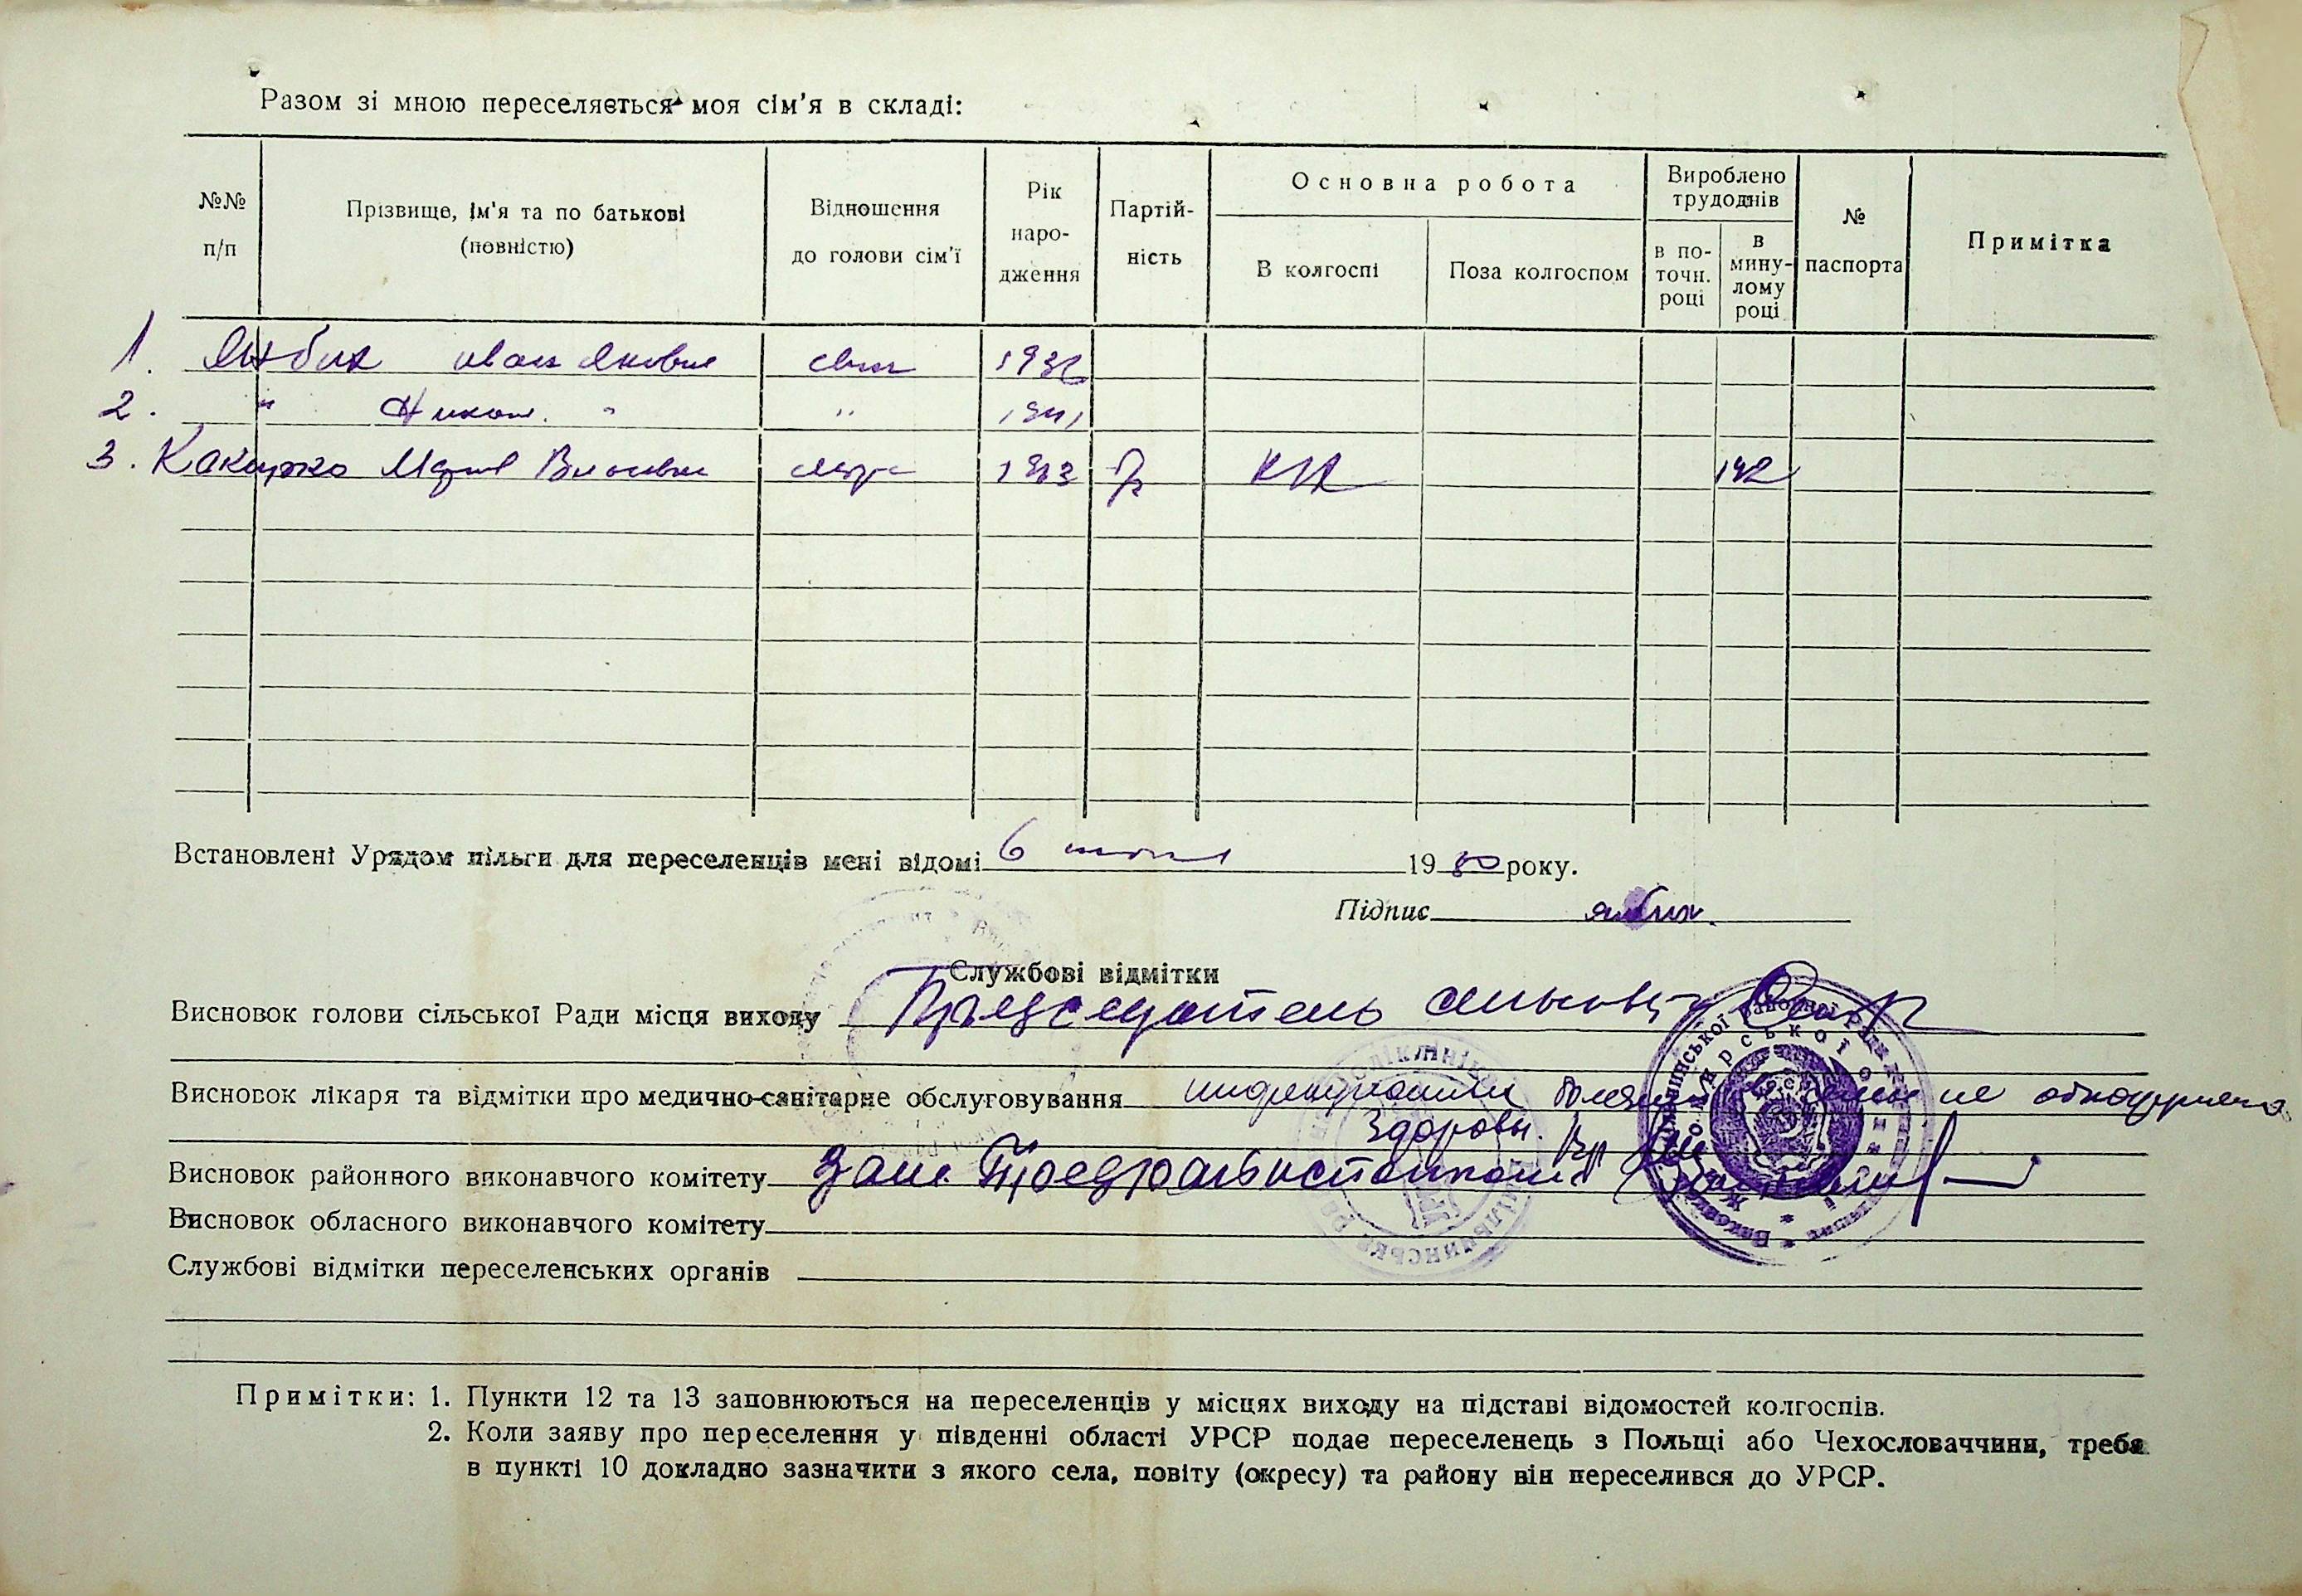 Разом зі мною переселяється моя сім'я в складі:
№№ п/п
Прізвище, ім'я та по батькові (повністю)
Відношення до голови сім'ї
Рік народження
Партійність
Основна робота
В колгоспі
Поза колгоспом
Вироблено трудоднів
в поточн. році
в минулому році
№ паспорта
Примітка
1. Яковл сын 1936
2. " Никол. " " 1941
3. Мария 1913 142
Встановлені Урядом пільги для переселенців мені відомі 6 1950 року.
Підпис
Службові відмітки
Висновок голови сільської Ради місця виходу Председатель
Висновок лікаря та відмітки про медично-санітарне обслуговування не обнаружено
Здоровы. Вр
Висновок районного виконавчого комітету Зам.
Висновок обласного виконавчого комітету
Службові відмітки переселенських органів
Примітки: 1. Пункти 12 та 13 заповнюються на переселенців у місцях виходу на підставі відомостей колгоспів.
2. Коли заяву про переселення у південні області УРСР подає переселенець з Польщі або Чехословаччини, треба
в пункті 10 докладно зазначити з якого села, повіту (окресу) та району він переселився до УРСР.